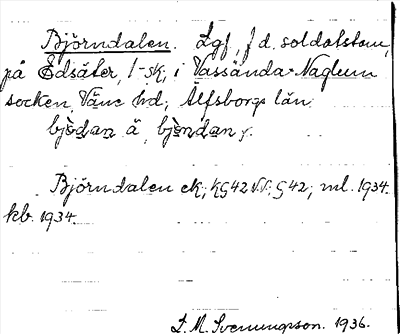 Björndalen. Lgf, f d. soldatstom,
på Edsäter, 1-sk, i Vassända-Naglum
socken, Väne hd, Älfsborgs län.
bjö̀dan å, bjö̀ndan,.
Björndalen ek; kG42 G42, ml. 1934.
kb. 1934.
D. M. Svenungsson. 1936.